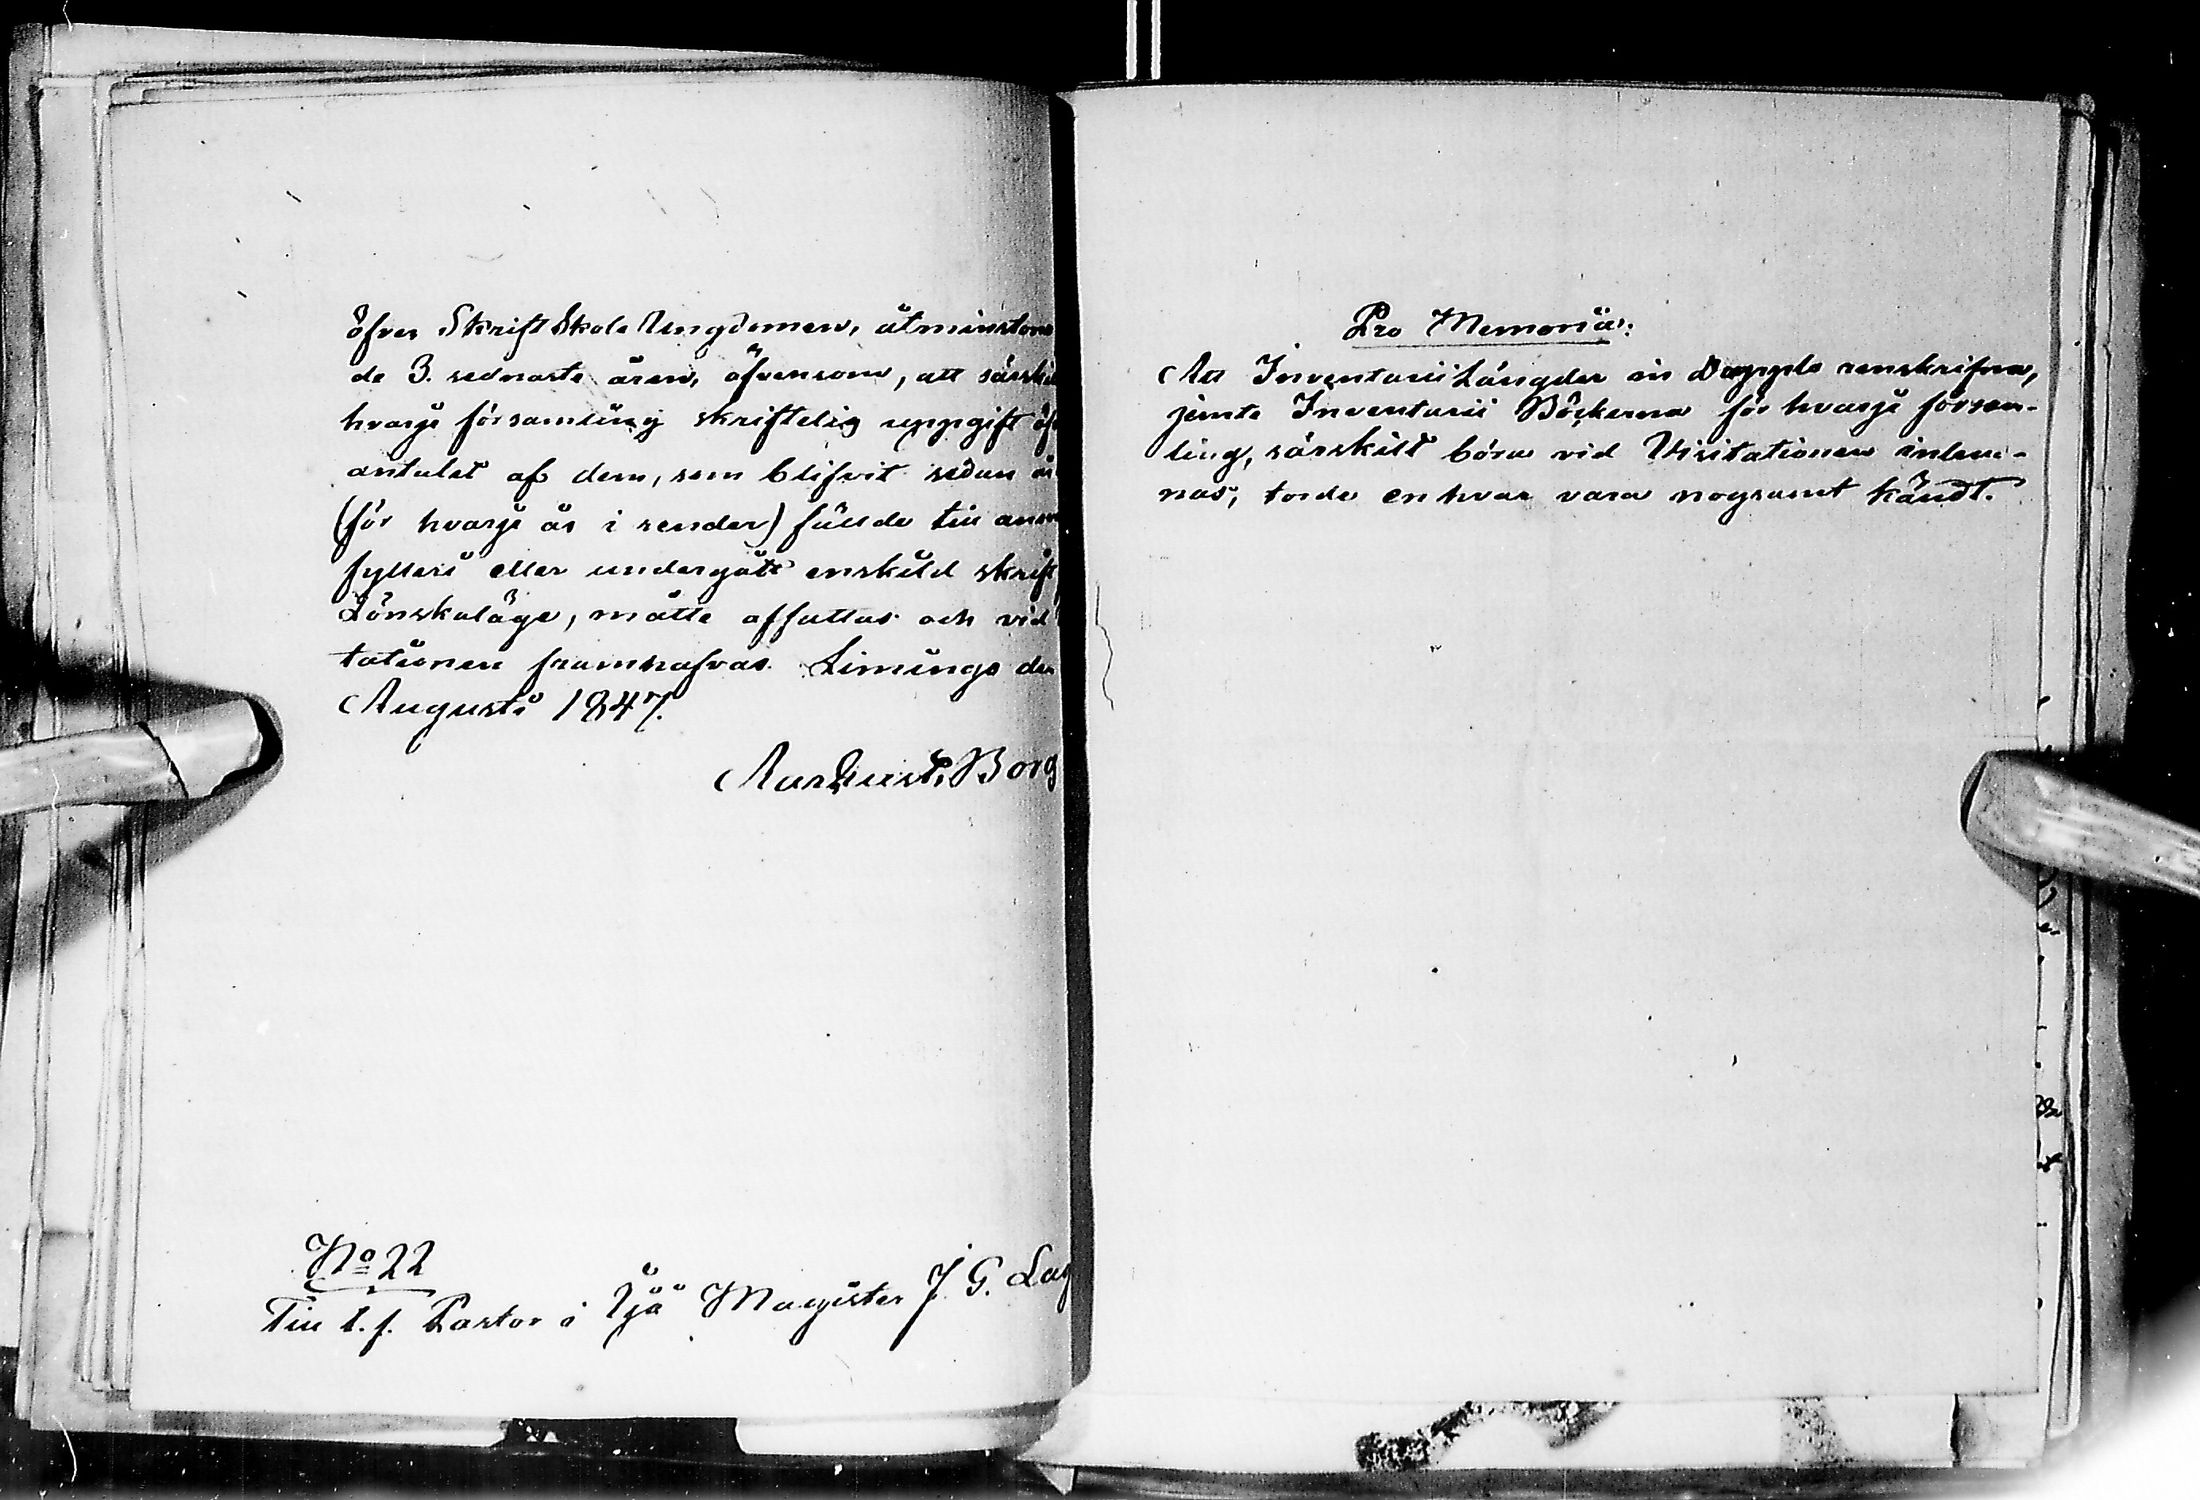 öfver SkriftSkole Ungdomen, åtminstone
de 3. sednaste åren, äfvensom, att särski
hvarje församling skriftelig uppgift öf
antalet af dem, som blifvit sedan år
(för hvarje år i sender) fällde till ans
fylleri eller undergått enskild skrift
Lönskaläge, måtte affattas och vid
tationen framhafvas. Limingo den
Augusti 1847.
Aur Quist. Borg
No 22
Till t. f. Pastor i Ijå Magister J. G. Lag
Pro Memoria:
Att Inventarii Längder in Dupplo renskrifna,
jemte Inventarii Böckerna för hvarje försam-
ling, särskilt böra vid Visitationen inlem-
nas, torde en hvar vara nogsamt kändt.